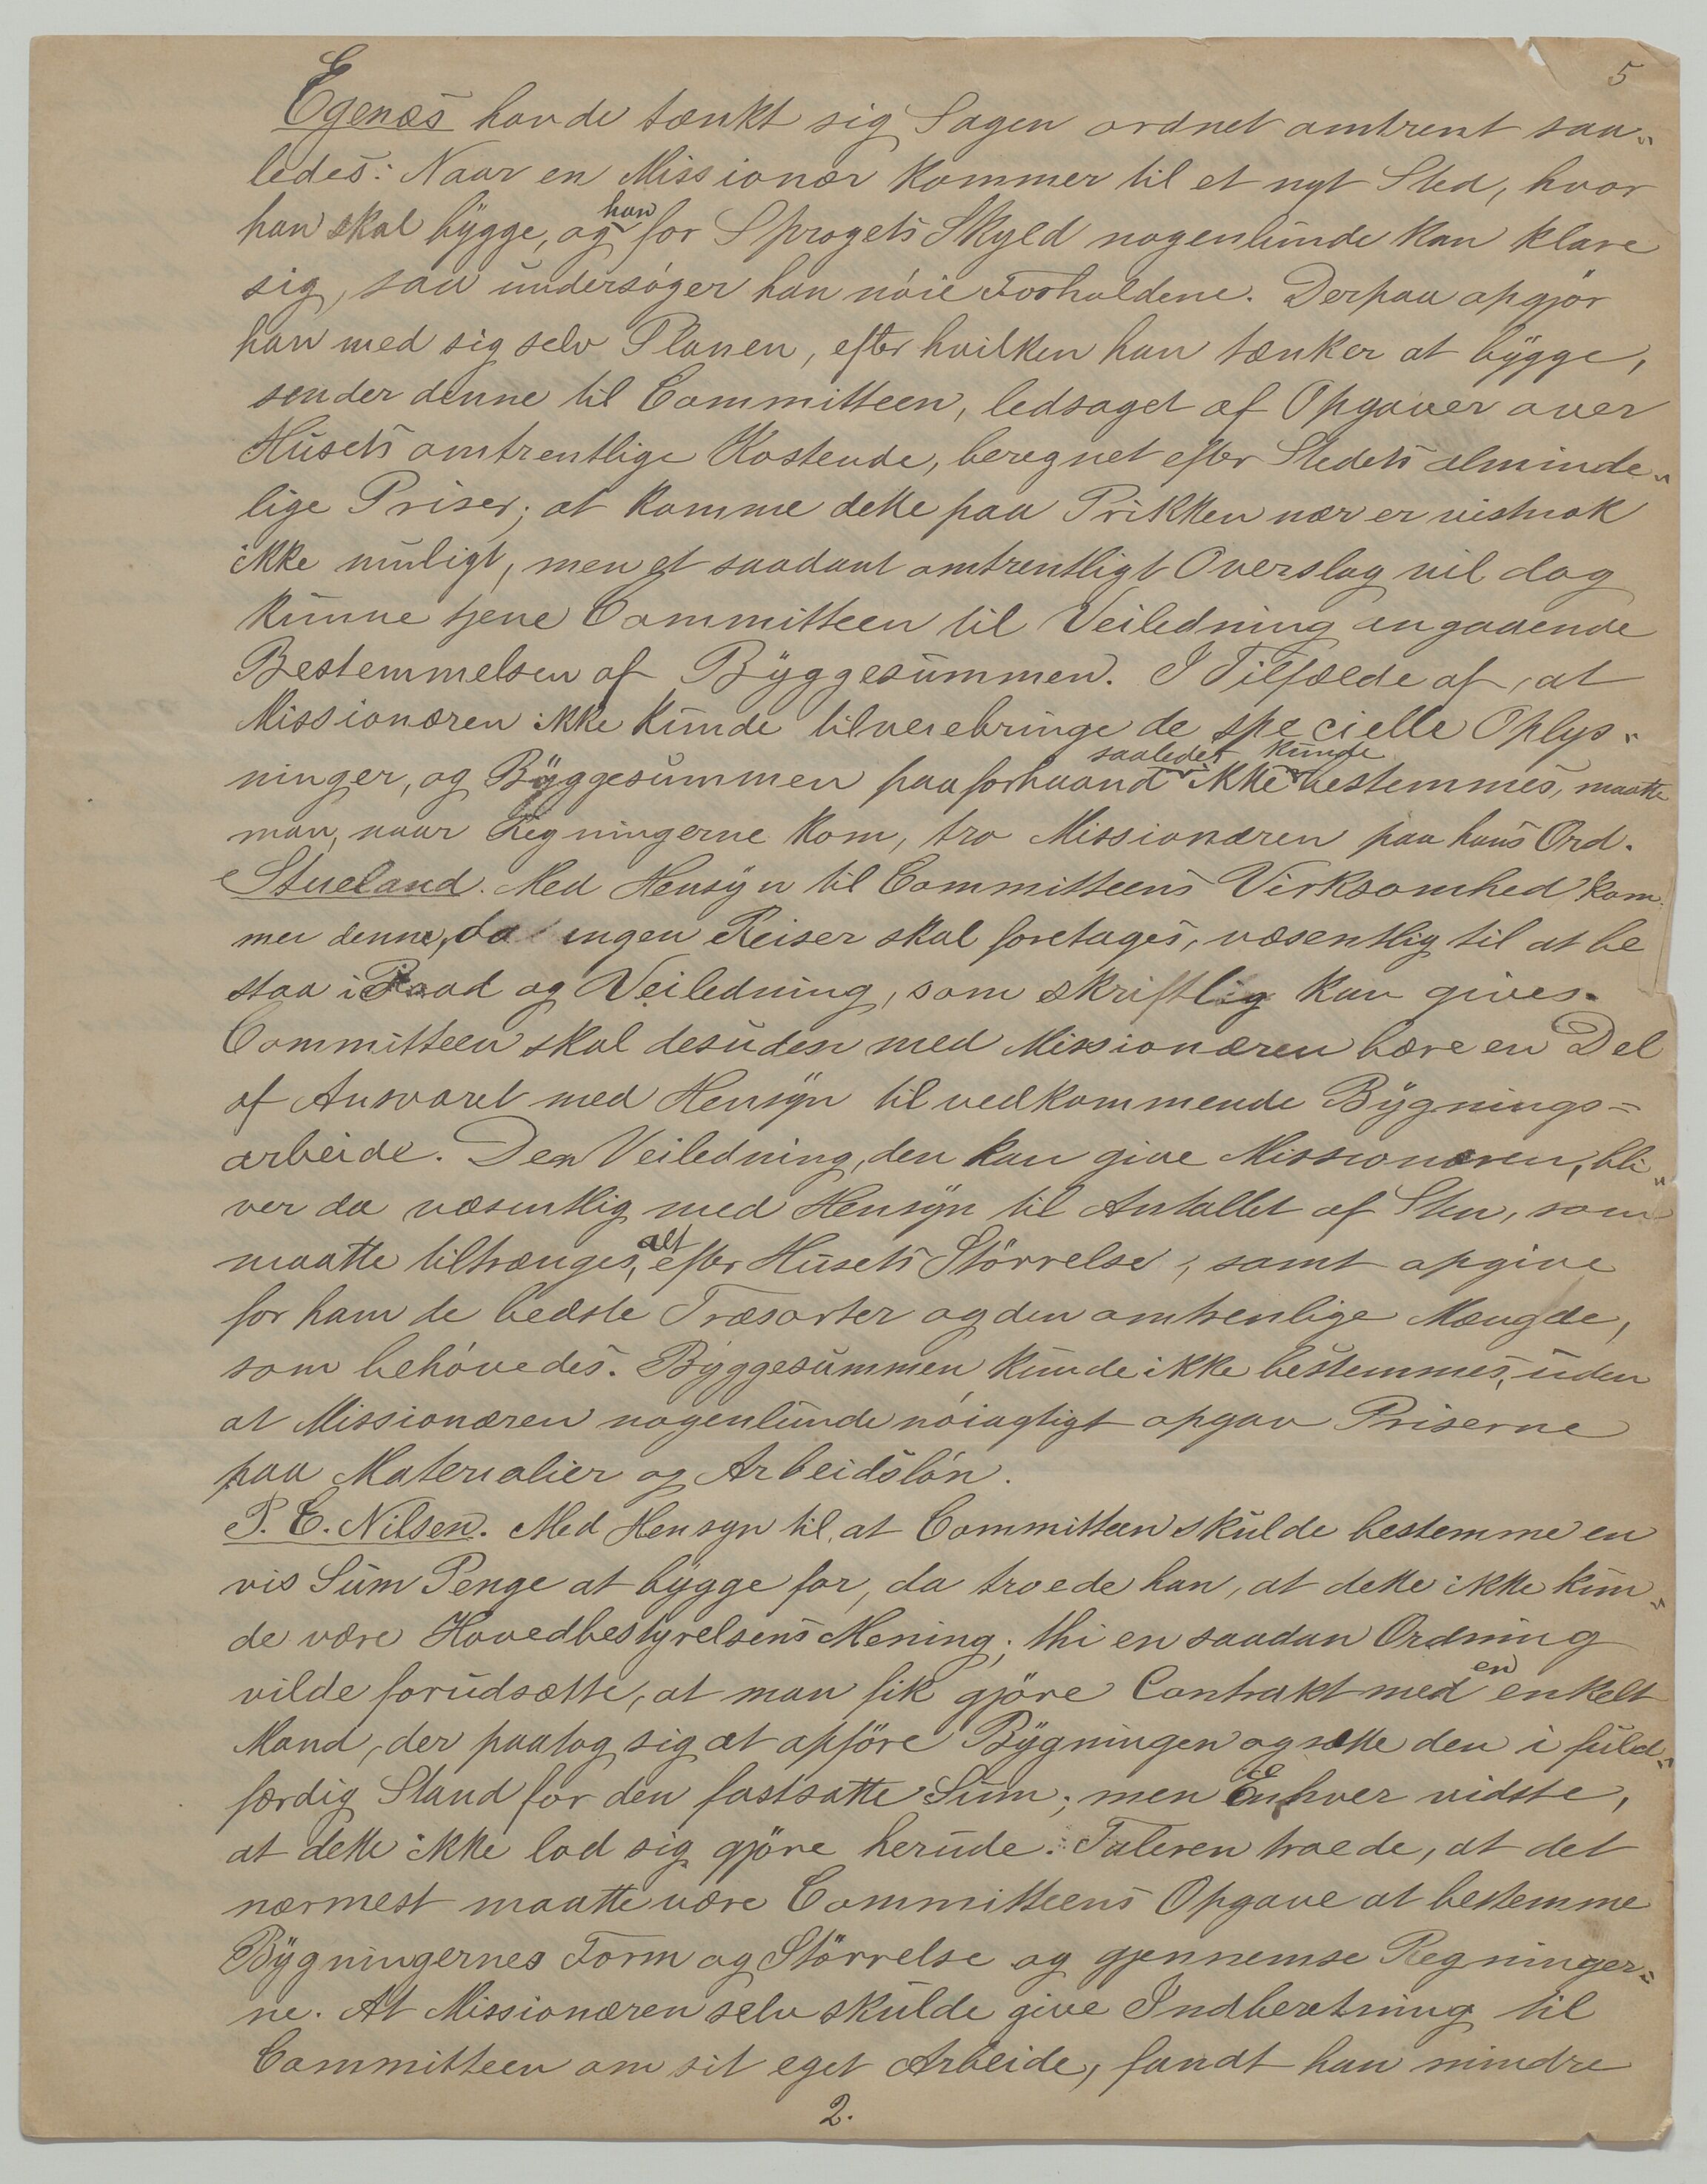 5
Egenæs havde tænkt sig Sagen ordnet omtrent saa„
ledes: Naar en Missionær kommer til et nyt Sted, hvor
han skal bygge, og han for Sprogets Skyld nogenlunde kan klare
sig, saa undersøger han nøie Forholdene. Derpaa opgjør
han med sig selv Planen, efter hvilken han tænker at bygge,
sender denne til Committeen, ledsaget af Opgaver over
Husets omtrentlige Kostende, beregnet efter Stedets alminde„
lige Priser; at komme dette paa Prikken nær er vistnok
ikke muligt, men et saadant omtrentligt Overslag vil dog
kunne tjene Committeen til Veiledning angaaende
Bestemmelsen af Byggesummen. I Tilfælde af, at
Missionæren ikke kunde tilveiebringe de specielle Oplys„
ninger, og Byggesummen paa forhaand saaledes ikke kunde bestemmes, maatte
man, naar Regningerne kom, tro Missionæren paa hans Ord.
Stueland. Med Hensyn til Committeens Virksomhed kom
mer denne, da ingen Reiser skal foretages, væsentlig til at be
staa i Raad og Veiledning, som skriftlig kan gives.
Committeen skal desuden med Missionæren bære en Del
af Ansvaret med Hensyn til vedkommende Bygnings=
arbeide. Den Veiledning, den kan give Missionæren, bli„
ver da væsentlig med Hensyn til Antallet af Sten, som
maatte tiltrænges, alt efter Husets Størrelse, samt opgive
for ham de bedste Træsorter og den omtrenlige Mængde,
som behøvedes. Byggesummen kunde ikke bestemmes, uden
at Missionæren nogenlunde nøiagtigt opgav Priserne
paa Materialier og Arbeidsløn.
P. E. Nilsen. Med Hensyn til, at Committeen skulde bestemme en
vis Sum Penge at bygge for, da troede han, at dette ikke kun„
de være Hovedbestyrelsens Mening; thi en saadan Ordning
vilde forudsætte, at man fik gjøre Contrakt med en enkelt
Mand, der paatog sig at opføre Bygningen og sætte den i fuld„
færdig Stand for den fastsatte Sum; men Enhver vidste,
at dette ikke lod sig gjøre herude. Taleren troede, at det
nærmest maatte være Committeens Opgave at bestemme
Bygningernes Form og Størrelse og gjennemse Regninger=
ne. At Missionæren selv skulde give Indberetning til
Committeen om sit eget Arbeide, fandt han mindre
2.